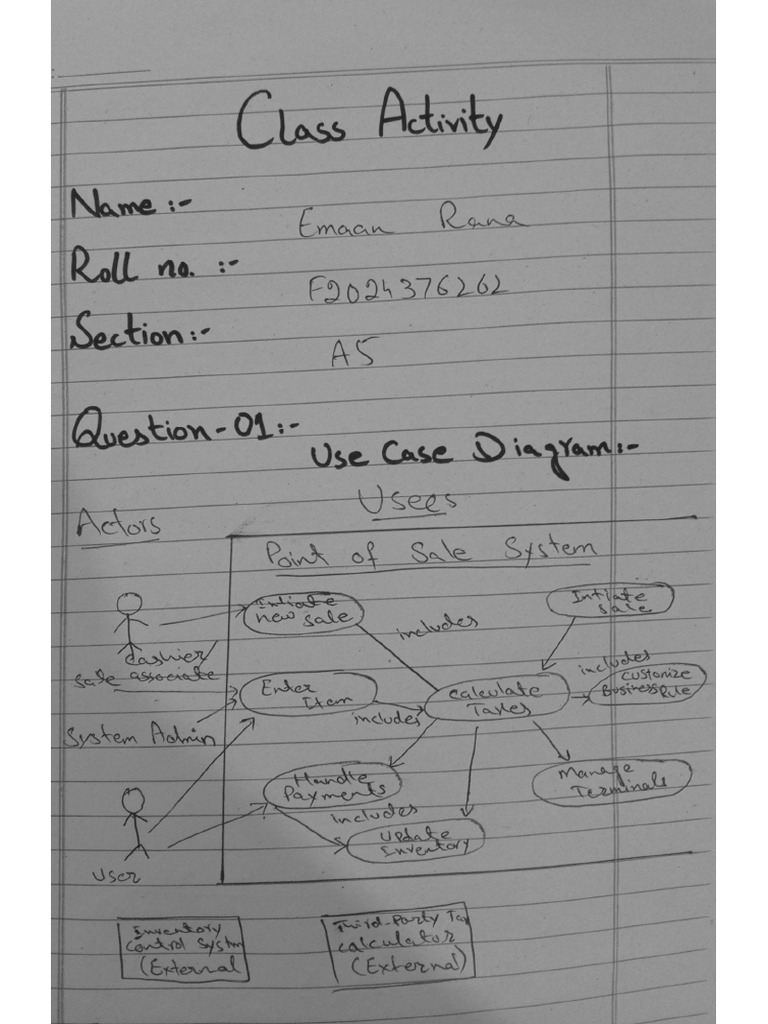 Class Activity
Name :-
Emaan Rana
Roll no. :-
F2024376262
Section:-
A5
Question-01:-
Use Case Diagram:-
Usees
Actors
Point of Sale System
Intiate
new sale
Intiate
sale
includes
cashier/
sale associate
Enter
Item
includes
Calculate
Taxes
includes
customize
Business Rule
System Admin
Handle
Payments
includes
Update
Inventory
Manage
Terminals
user
Inventory
Control System
(External
Third-Party Tax
calculator
(External)